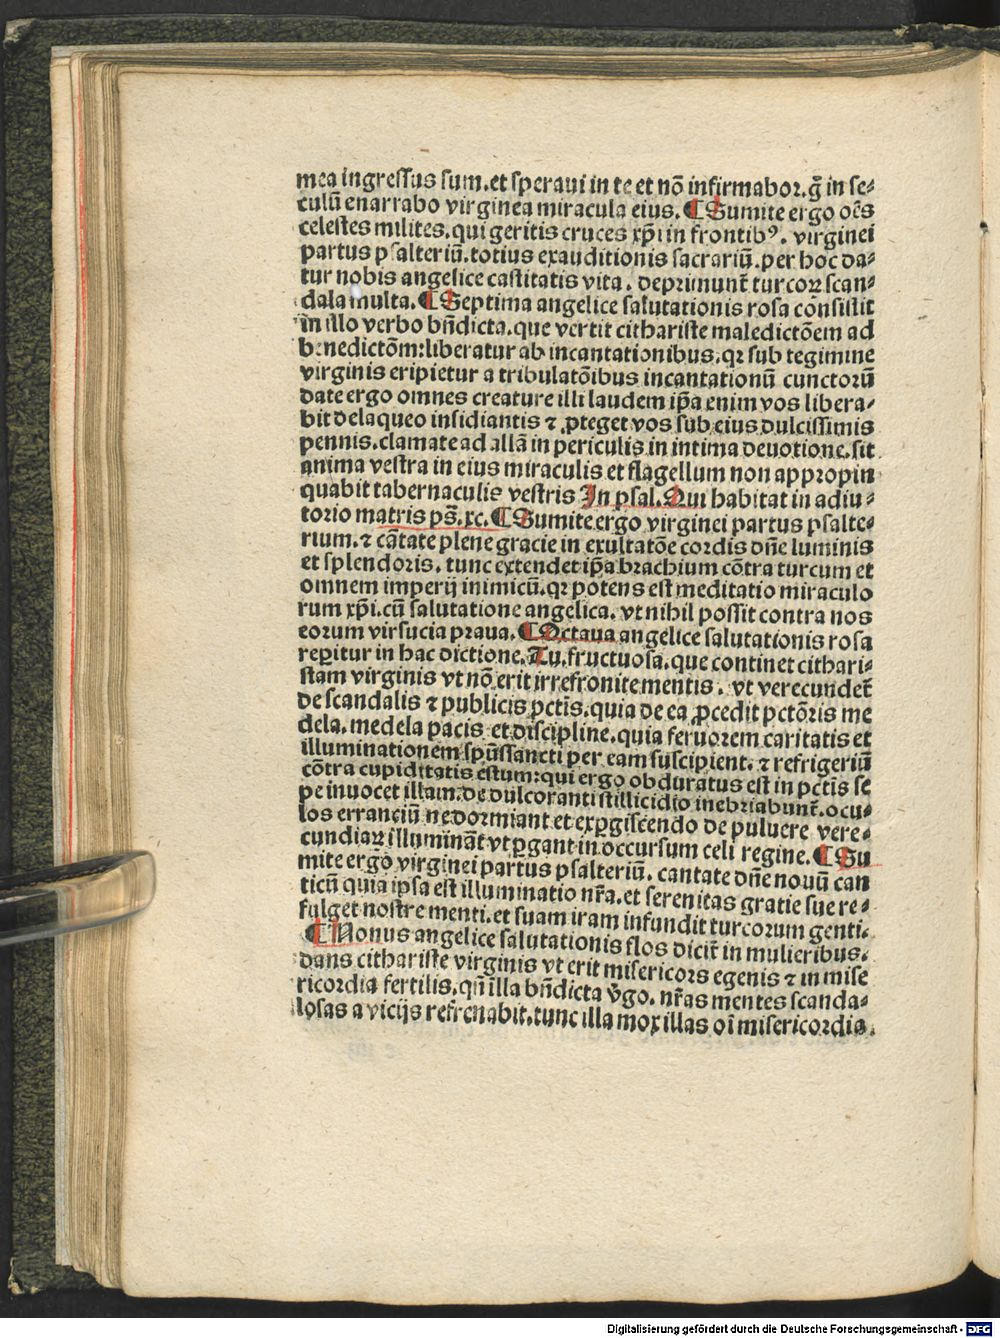 mea ingressus sum. et speraui in te et nō infirmabor. g̃ in se⸗
culū enarrabo virginea miracula eius. ¶ Sumite ergo oēs
celestes milites. qui geritis cruces xp̄i in frontibꝰ. virginei
partus psalteriū. totius exauditionis sacrariū. per hoc da⸗
tur nobis angelice castitatis vita. deprimunt̄ turcoꝝ scan⸗
dala multa. ¶ Septima angelice salutationis rosa consistit
in illo verbo bn̄dicta. que vertit cithariste maledictōem ad
benedictōm: liberatur ab incantationibus. qꝛ sub tegimine
virginis eripietur a tribulatōibus incantationū cunctorū
date ergo omnes creature illi laudem ip̄a enim vos libera⸗
bit de laqueo insidiantis ⁊ ꝓteget vos sub eius dulcissimis
pennis. clamate ad allā in periculis in intima deuotione. sit
anima vestra in eius miraculis et flagellum non appropin
quabit tabernaculis vestris In psal. Qui habitat in adiu⸗
torio matris ps̄. xc. ¶ Sumite ergo virginei partus psalte⸗
rium. ⁊ cātate plene gracie in exultatōe cordis dn̄e luminis
et splendoris. tunc extendet ip̄a brachium cōtra turcum et
omnem imperij inimicū. qꝛ potens est meditatio miraculo
rum xp̄i. cū salutatione angelica. vt nihil possit contra nos
eorum virsucia praua. ¶ Octaua angelice salutationis rosa
reꝑitur in hac dictione. Tu. fructuosa. que continet cithari⸗
stam virginis vt nō erit irrefronite mentis. vt verecundet̄
de scandalis ⁊ publicis pctīs. quia de ea ꝓcedit pctōris me
dela. medela pacis et discipline. quia feruorem caritatis et
illuminationem spūssancti per eam suscipient. ⁊ refrigeriū
cōtra cupiditatis estum: qui ergo obduratus est in pctīs se
pe inuocet illam. de dulcoranti stillicidio inebriabunt̄. ocu⸗
los erranciū ne dormiant et exꝑgiscendo de puluere vere⸗
cundiaꝝ illumināt vt ꝑgant in occursum celi regine. ¶ Su
mite ergo virginei partus psalteriū. cantate dn̄e nouū can
ticū quia ipsa est illuminatio nr̄a. et serenitas gratie sue re⸗
fulget nostre menti. et suam iram infundit turcorum genti.
¶ Nonus angelice salutationis flos dicit̄ in mulieribus.
dans cithariste virginis vt erit misericors egenis ⁊ in mise
ricordia fertilis. qn̄ illa bn̄dicta v̄go. nr̄as mentes scanda⸗
losas a vicijs refrenabit. tunc illa mox illas oī misericordia.
Digitalisierung gefördert durch die Deutsche Forschungsgemeinschaft - DFG